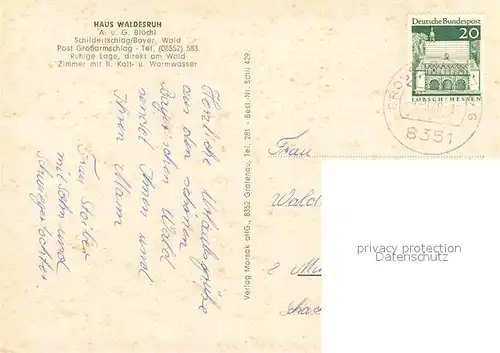 HAUS WALDESRUH
A. u. G. Blöchl
Schildertschlag/Bayer. Wald
Post Großarmschlag - Tel. (08552) 583
Ruhige Lage, direkt am Wald
Zimmer mit fl. Kalt- u. Warmwasser
Herzliche Urlaubsgrüße
aus dem schönen
Bayrischen Wald
sendet Ihnen und
Ihren Mann
Frau
mit Sohn und
Schwiegertochter.
Verlag Marsak oHG., 8352 Grafenau, Tel. 281 - Best.-Nr. Schil 429
Deutsche Bundespost
20
LORSCH/HESSEN
8351
Frau
8
privacy protection
Datenschutz